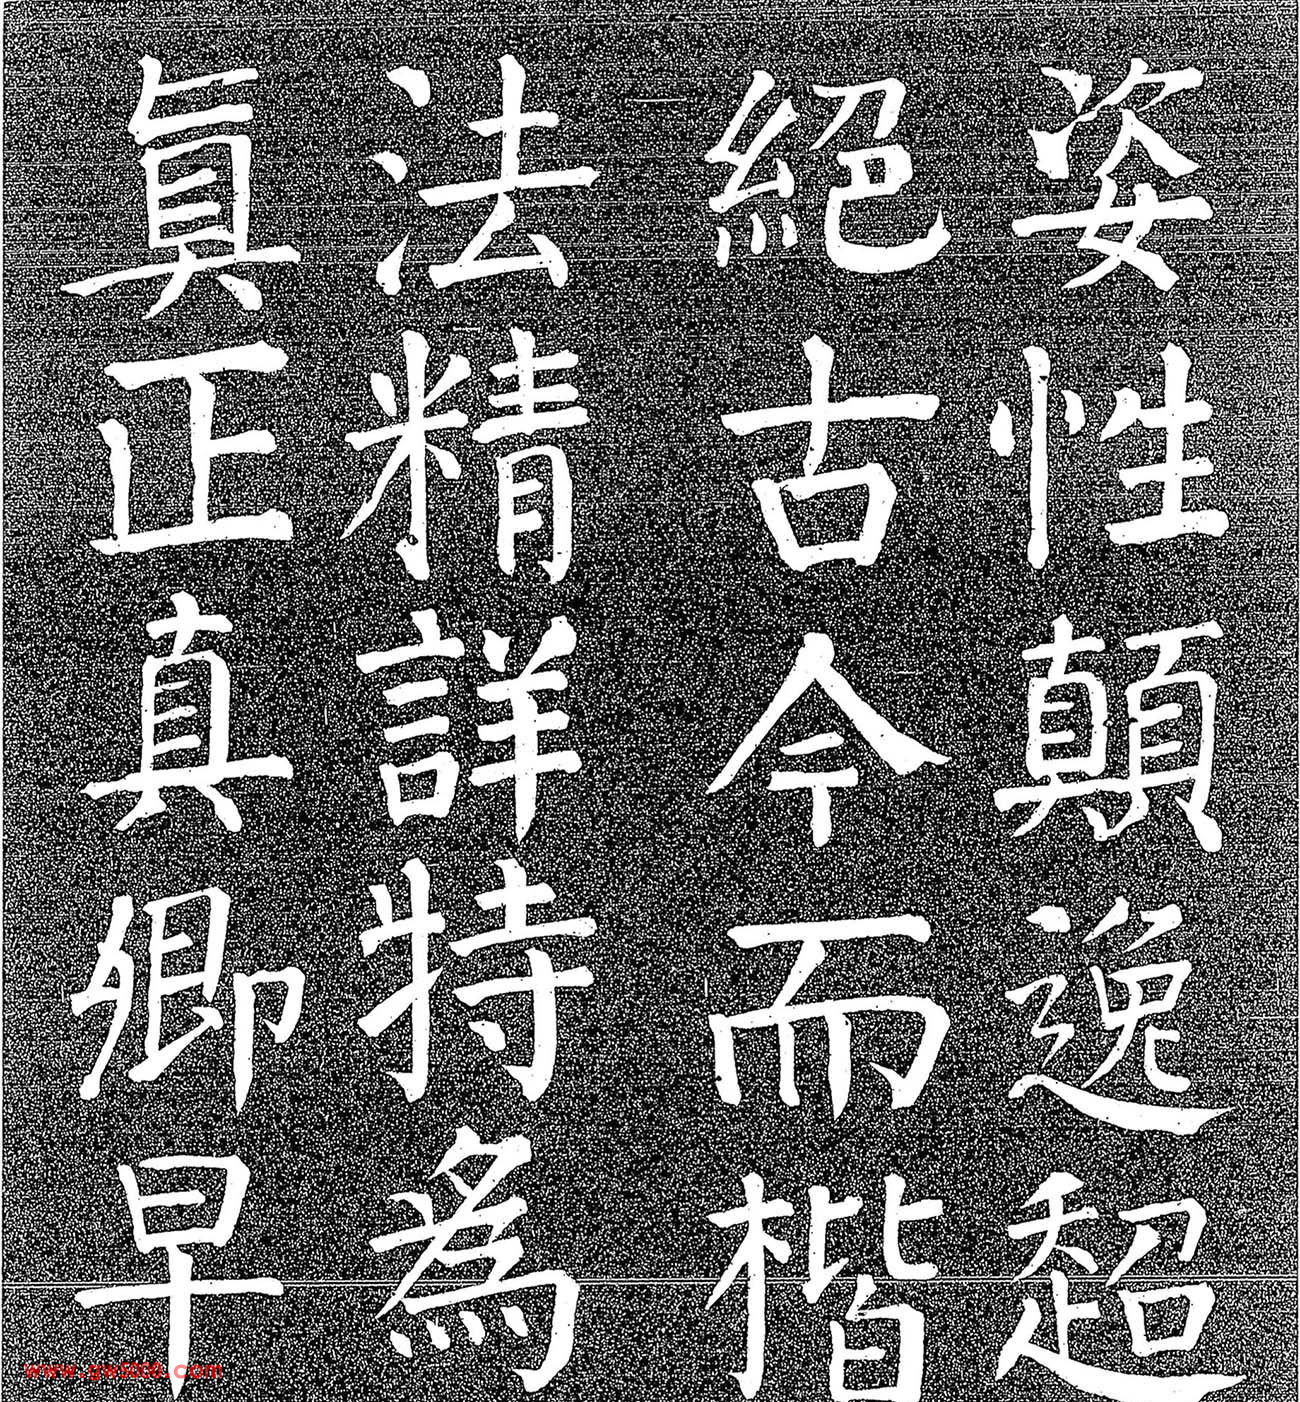 姿性顛逸超
絕古今而楷
法精詳特為
眞正真卿早
www.gw5000.com